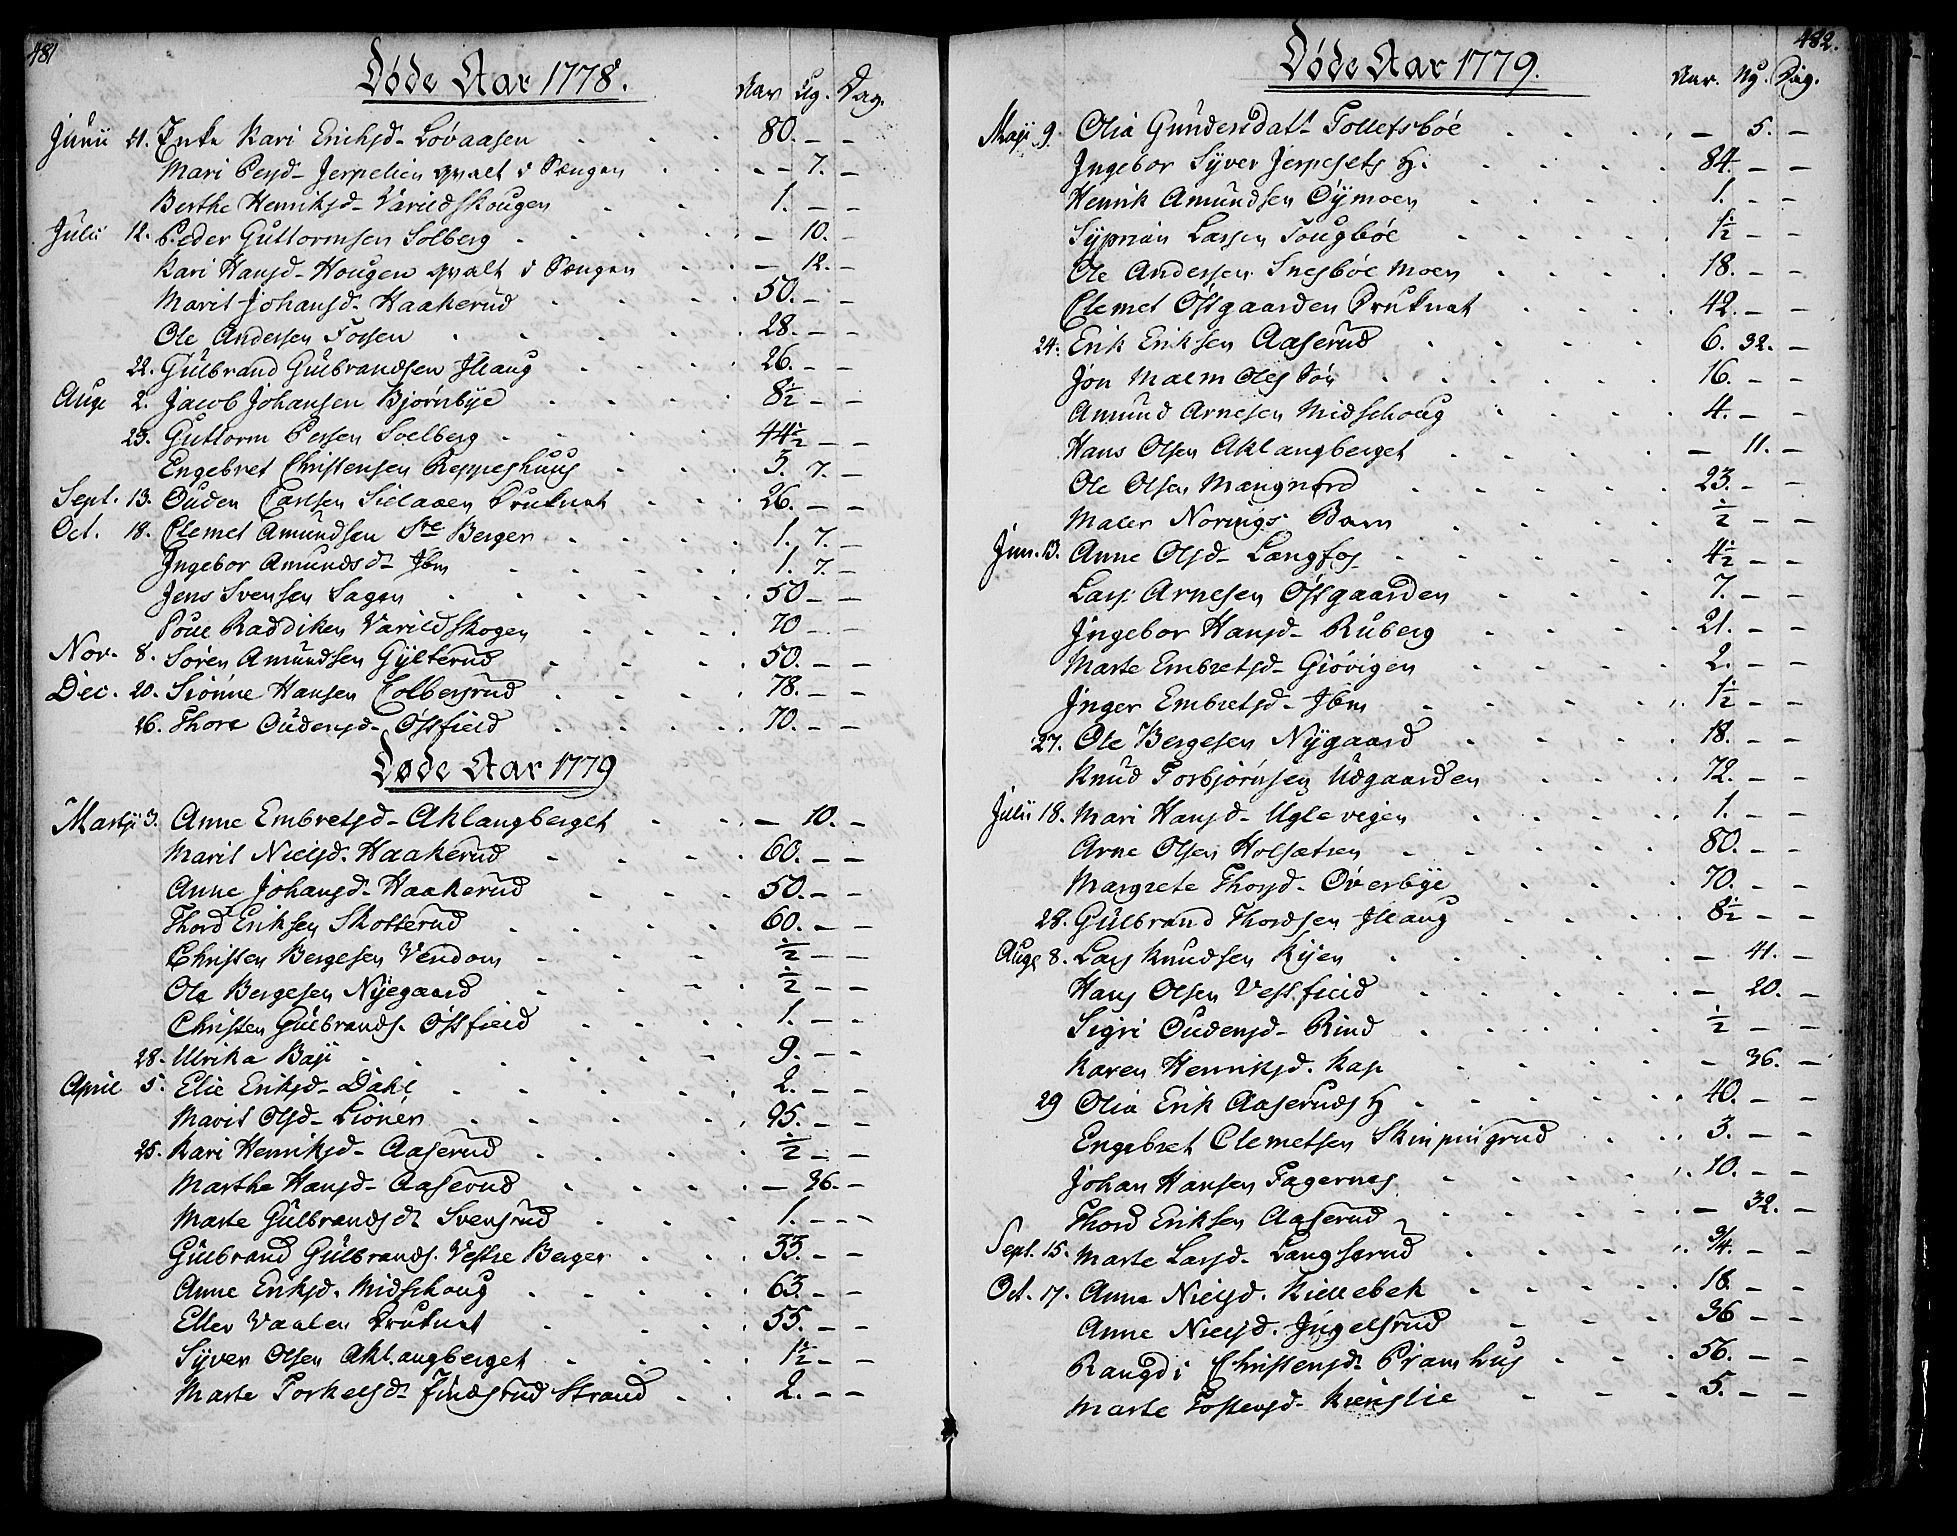 481
Døde Aar 1778.
Aar Ug. Dag.
Junii 21. Enke Kari Erichsd. Lovaasen 80. - -
Mari Persd. Jerpelien qvalt i Sengen - 7. -
Berthe Henriksd. Varildskougen 1. - -
Julii 12. Peder Guttormsen Solberg - 10. -
Kari Hansd. Hougen qvalt i Sengen - 12. -
Marit Johansd. Haakerud 50. - -
Ole Andersen Fossen 28. - -
22. Gulbrand Gulbrandsen Illaug 26. - -
Aug. 2. Jacob Johansen Bjørnbye 8½ - -
23. Guttorm Persen Soelberg 44½ - -
Engebret Christensen Reppeshuus 3. 7. -
Sept. 13. Ouden Carlsen 26. - -
Oct. 18. Clemet Amundsen Stre Berger 1. 7. -
Ingebor Amundsd. Ibm 1. 7. -
Jens Svensen Sagen 50 - -
Poul Raddiken Varildskogen 70 - -
Nov. 8. Søren Amundsen Gylterud 50. - -
Dec. 20. Siønne Hansen Colbersrud 78. - -
26. Thore Oudensd. Østfield 70. - -
Døde Aar 1779
Martii 3. Anne Embretsd. Aklangberget - 10. -
Marit Nielsd. Haakerud 60. - -
Anne Johansd. Haakerud 50. - -
Thord Eriksen Skotterud 60. - -
Christen Bergesen Vendom ½ - -
Ole Bergesen Nyegaard ½ - -
Christen Gulbrands. Østfield 1. - -
28. Ulrika Baji 9. - -
April 5. Elie Eriksd. Dahl 2. - -
Marit Olsd. Liønes 95. - -
25. Kari Henriksd. Aaserud ½ - -
Marthe Hansd. Aaserud - 36. -
Marte Gulbrandsdr Svensrud 1. - -
Gulbrand Gulbrands. Vestre Berger 33. - -
Anne Eriksd. Midschoug 63. - -
Eller Vaalen 55. - -
Syver Olsen Aklangberget 1½ - -
Marte Torkelsd. Findsrud Strand 2. - -
482.
Døde Aar 1779.
Aar. Ug. Dag.
Maji 9. Olia Gundersdatr Tollefsbøe - 5. -
Ingebor Syver Jerpesets H. 84. - -
Henrik Amundsen Øymoen 1. - -
Syprian Larsen Tougbøe 1½ - -
Ole Andersen Snesbøe moen 18. - -
Clemet Østgaarden 42. - -
24. Erik Eriksen Aaserud 6. 32. -
Jon Malm Oles Søn 16. - -
Amund Arnesen Midschoug 4. - -
Hans Olsen Aklangberget - 11. -
Ole Olsen Mangnord 23. - -
Maler Norings Barn ½ - -
Jun. 13. Anne Olsd. Langfos 4½ - -
Lars Arnesen Østgaarden 7. - -
Ingebor Hansd. Ruberg 21. - -
Marte Embretsd. Giøvigen 2. - -
Inger Embretsd. Ibm 1½ - -
27. Ole Bergesen Nygaard 18. - -
Knud Torbjørnsen Udgaarden 72. - -
Julii 18. Mari Hansd. Uglevigen 1. - -
Arne Olsen Holsætren 80. - -
Margrete Thorsd. Øverbye 70. - -
28. Gulbrand Thordsen Illaug 8½ - -
Aug. 8. Lars Knudsen Kijen - 41. -
Hans Olsen Vestfield - 20. -
Sigri Oudensd. Rind ½ - -
Karen Henriksd. Kap - 36. -
29 Olia Erik Aaseruds H 40. - -
Engebret Clemetsen Skinpingrud 3. - -
Johan Hansen Fagernes 10. - -
Thord Eriksen Aaserud - 32. -
Sept. 15. Marte Larsd. Langsærud ¾. - -
Oct. 17. Anna Nielsd. Killebek 18. - -
Anne Nielsd. Ingelsrud 36 - -
Rangdi Christensdr Pramhus 56. - -
Marte Tostensd. Kiinslie 5. - -